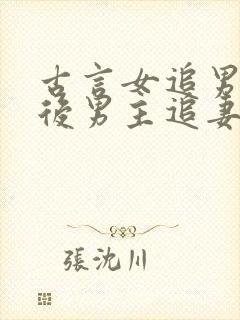 古言女追男
後男主追妻
張沈川